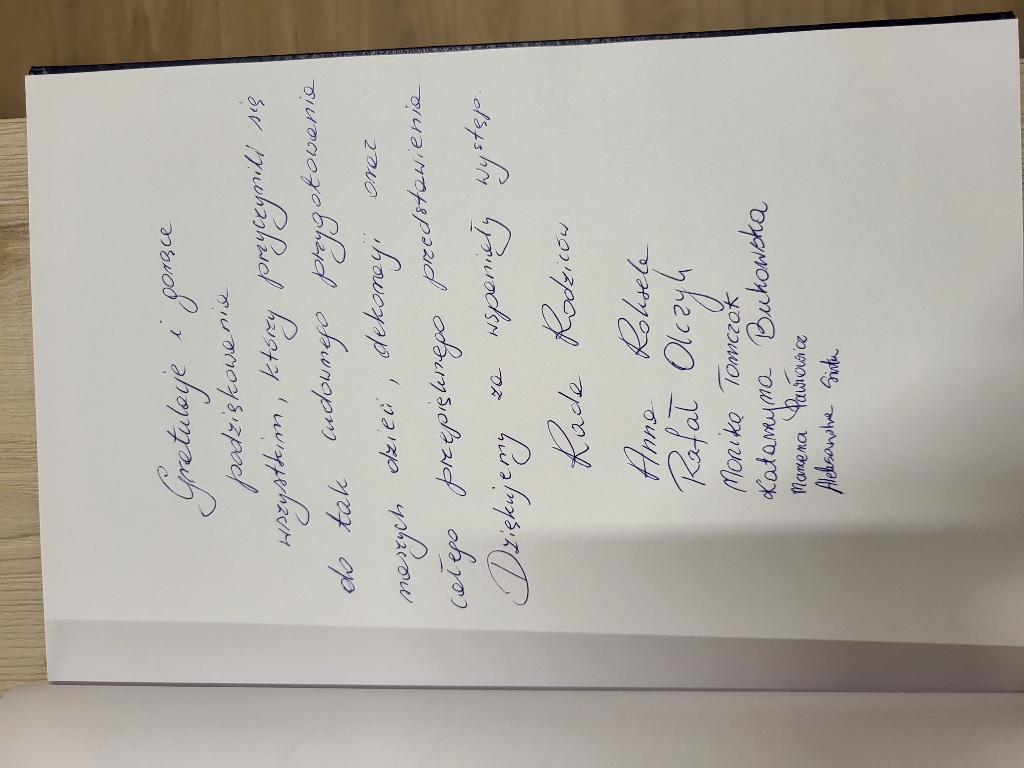 Gratulacje i gorące
podziękowania
wszystkim, którzy przyczynili się
do tak cudownego przygotowania
naszych dzieci, dekoracji oraz
całego przepięknego przedstawienia.
Dziękujemy za wspaniały występ.
Rada Rodziców
Anna
Rafał Olczyk
Monika Tomczak
Katarzyna Bukowska
Marzena
Aleksandra